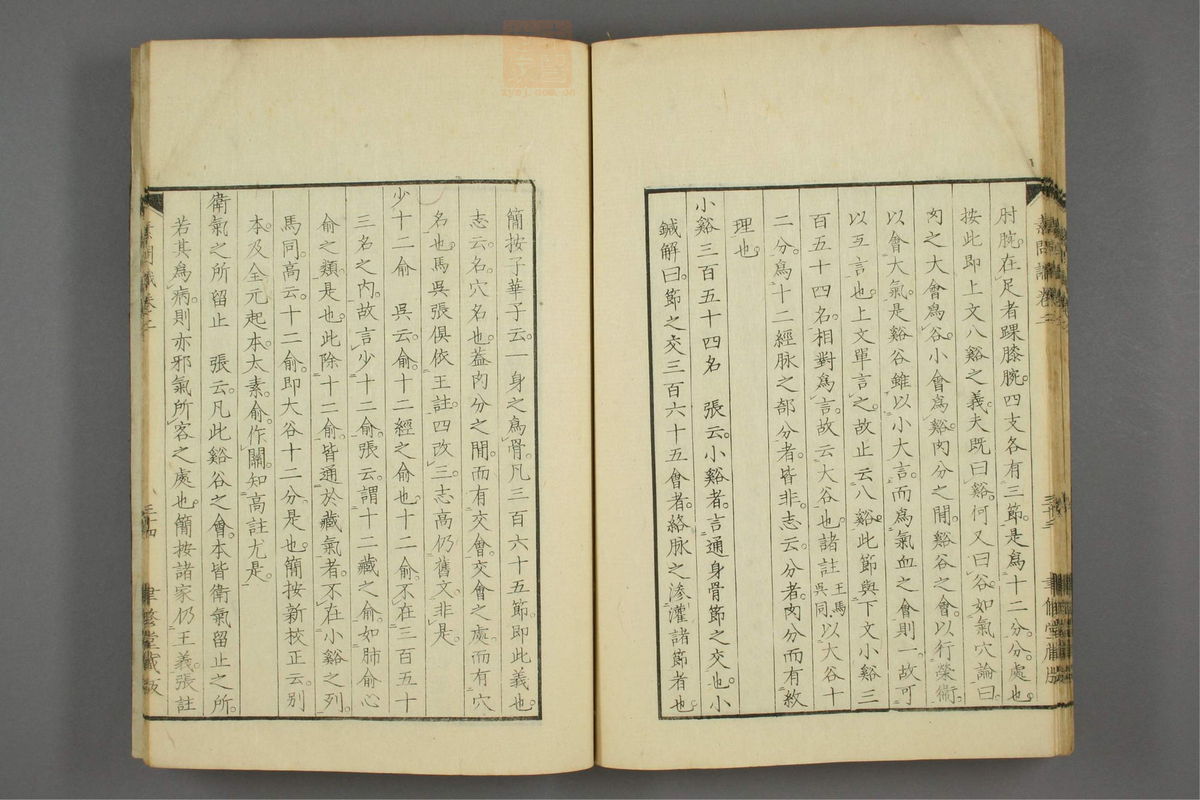 肘腕。在足者踝膝腕。四支各有三節。是爲十二分。分。處也。
按此即上文八谿之義。夫既曰谿。何又曰谷。如氣穴論曰。
肉之大會爲谷。小會爲谿。肉分之間。谿谷之會。以行榮衞。
以會大氣。是谿谷雖以小大言。而爲氣血之會則一。故可
以互言也。上文單言之。故止云八谿。此節與下文小谿三
百五十四名。相對爲言。故云大谷也。諸註王馬吳同以大谷十
二分。爲十二經脉之部分者。皆非。志云。分者。肉分而有紋
理也。
小谿三百五十四名　張云。小谿者。言通身骨節之交也。小
鍼解曰。節之交三百六十五會者。絡脉之滲灌諸節者也。
簡按子華子云。一身之爲骨。凡三百六十五節。即此義也。
志云。名。穴名也。葢肉分之閒。而有交會。交會之處。而有穴
名也。馬吳張俱依王註。四改三。志高仍舊文。非是。
少十二俞　吳云。俞。十二經之俞也。十二俞。不在三百五十
三名之內。故言少十二俞。張云。謂十二藏之俞。如肺俞心
俞之類是也。此除十二俞。皆通於藏氣者。不在小谿之列。
馬同。高云。十二俞。即大谷十二分。是也。簡按新校正云。別
本。及全元起本。太素。俞。作關。知高註尤是。
衞氣之所留止　張云。凡此谿谷之會。本皆衞氣留止之所。
若其爲病。則亦邪氣所客之處也。簡按諸家仍王義。張註
素問識卷二
三十四
聿修堂藏版